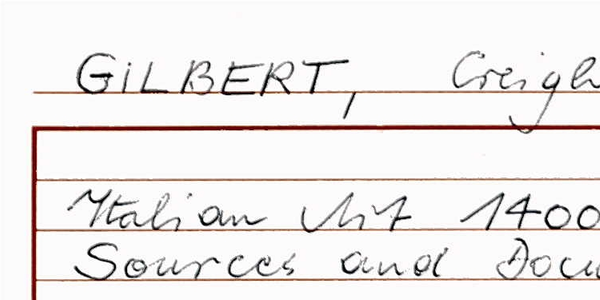 GILBERT, Creigh
Italian Art 1400
Sources and Docu